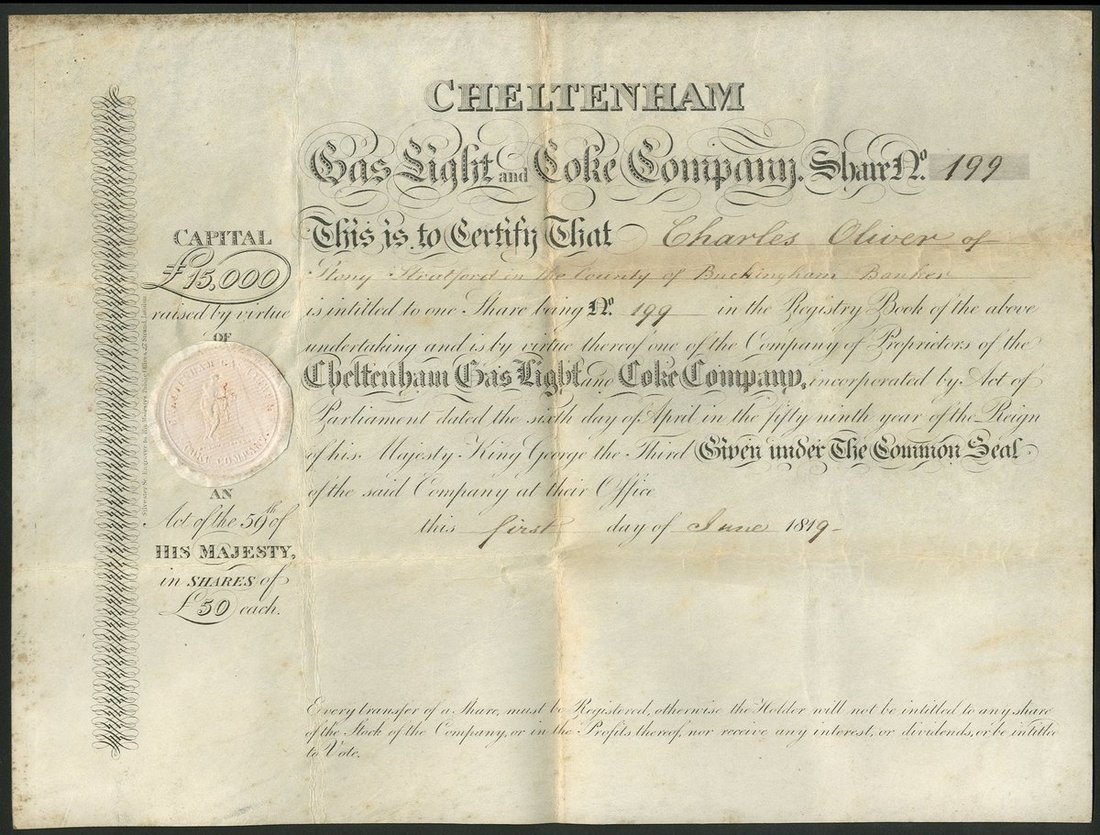 CHELTENHAM
Gas Light and Coke Company. Share No. 199
This is to Certify That Charles Oliver of
Stony Stratford in the County of Buckingham Banker
is intitled to one Share being No. 199 in the Registry Book of the above
undertaking and is by virtue thereof one of the Company of Proprietors of the
Cheltenham Gas Light and Coke Company, incorporated by Act of
Parliament dated the sixth day of April in the fifty ninth year of the Reign
of his Majesty King George the Third Given under The Common Seal
of the said Company at their Office
this first day of June 1819-
CAPITAL
£15,000
raised by virtue
OF
COKE COMPANY.
AN
Act of the 59th of
HIS MAJESTY,
in SHARES of
£50 each.
Every transfer of a Share, must be Registered, otherwise the Holder will not be intitled to any share
of the Stock of the Company, or in the Profits thereof, nor receive any interest, or dividends, or be intitled
to Vote.